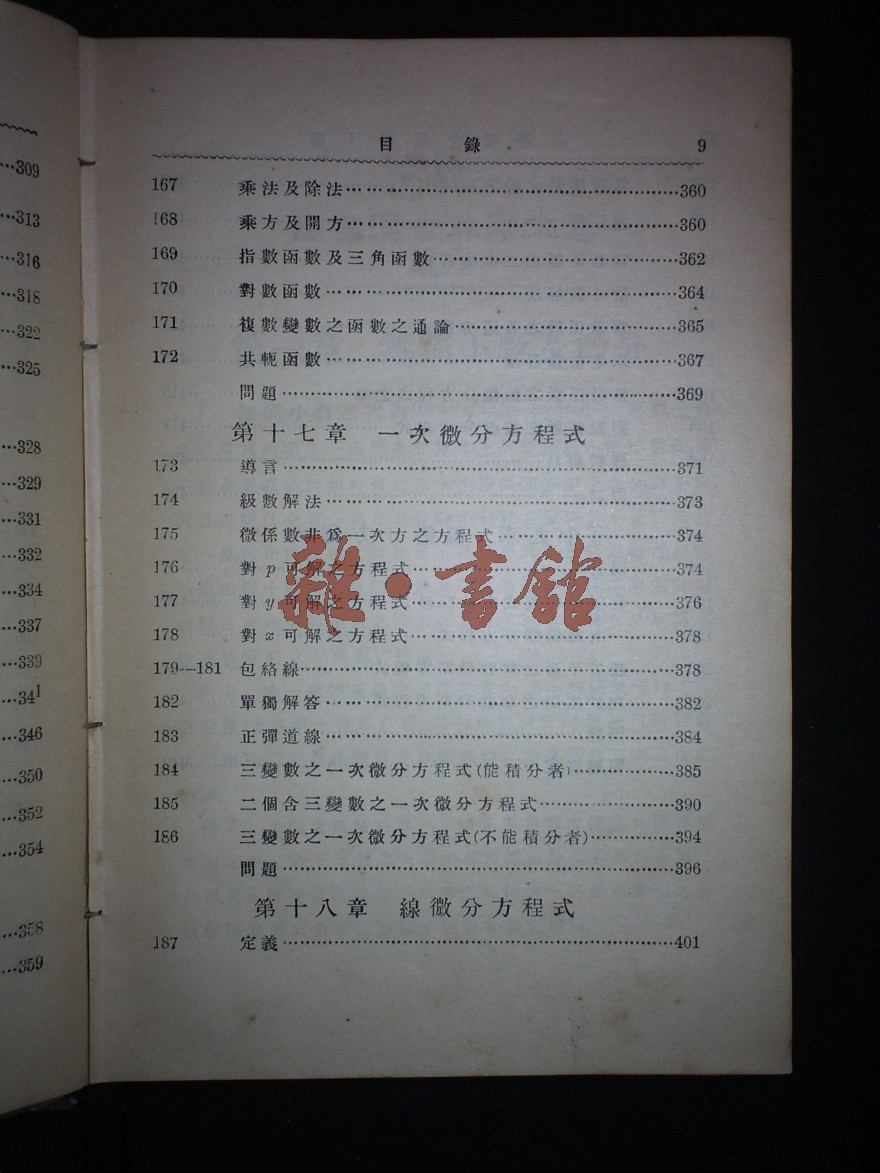 …309
…313
…316
…318
…322
…325
…328
…329
…331
…332
…334
…337
…339
…341
…346
…350
…352
…354
…358
…359
目錄 9
167 乘法及除法………………360
168 乘方及開方………………360
169 指數函數及三角函數………………362
170 對數函數………………364
171 複數變數之函數之通論………………365
172 共軛函數………………367
問題………………369
第十七章 一次微分方程式
173 導言………………371
174 級數解法………………373
175 微係數非爲一次方之方程式………………374
176 對p可解之方程式………………374
177 對y可解之方程式………………376
178 對x可解之方程式………………378
179—181 包絡線………………378
182 單獨解答………………382
183 正彈道線………………384
184 三變數之一次微分方程式(能積分者)………………385
185 二個含三變數之一次微分方程式………………390
186 三變數之一次微分方程式(不能積分者)………………394
問題………………396
第十八章 線微分方程式
187 定義………………401
雜·書館